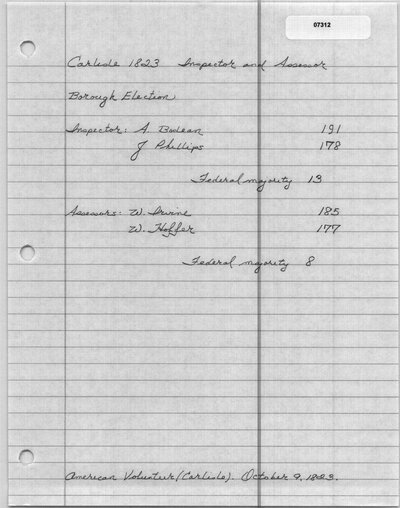 07312
Carlisle 1823 Inspector and Assessor
Borough Election
Inspector: A. Bodean 191
J Phillips 178
Federal majority 13
Assessors: W. Irvine 185
W. Hoffer 177
Federal majority 8
American Volunteer (Carlisle). October 9, 1823.